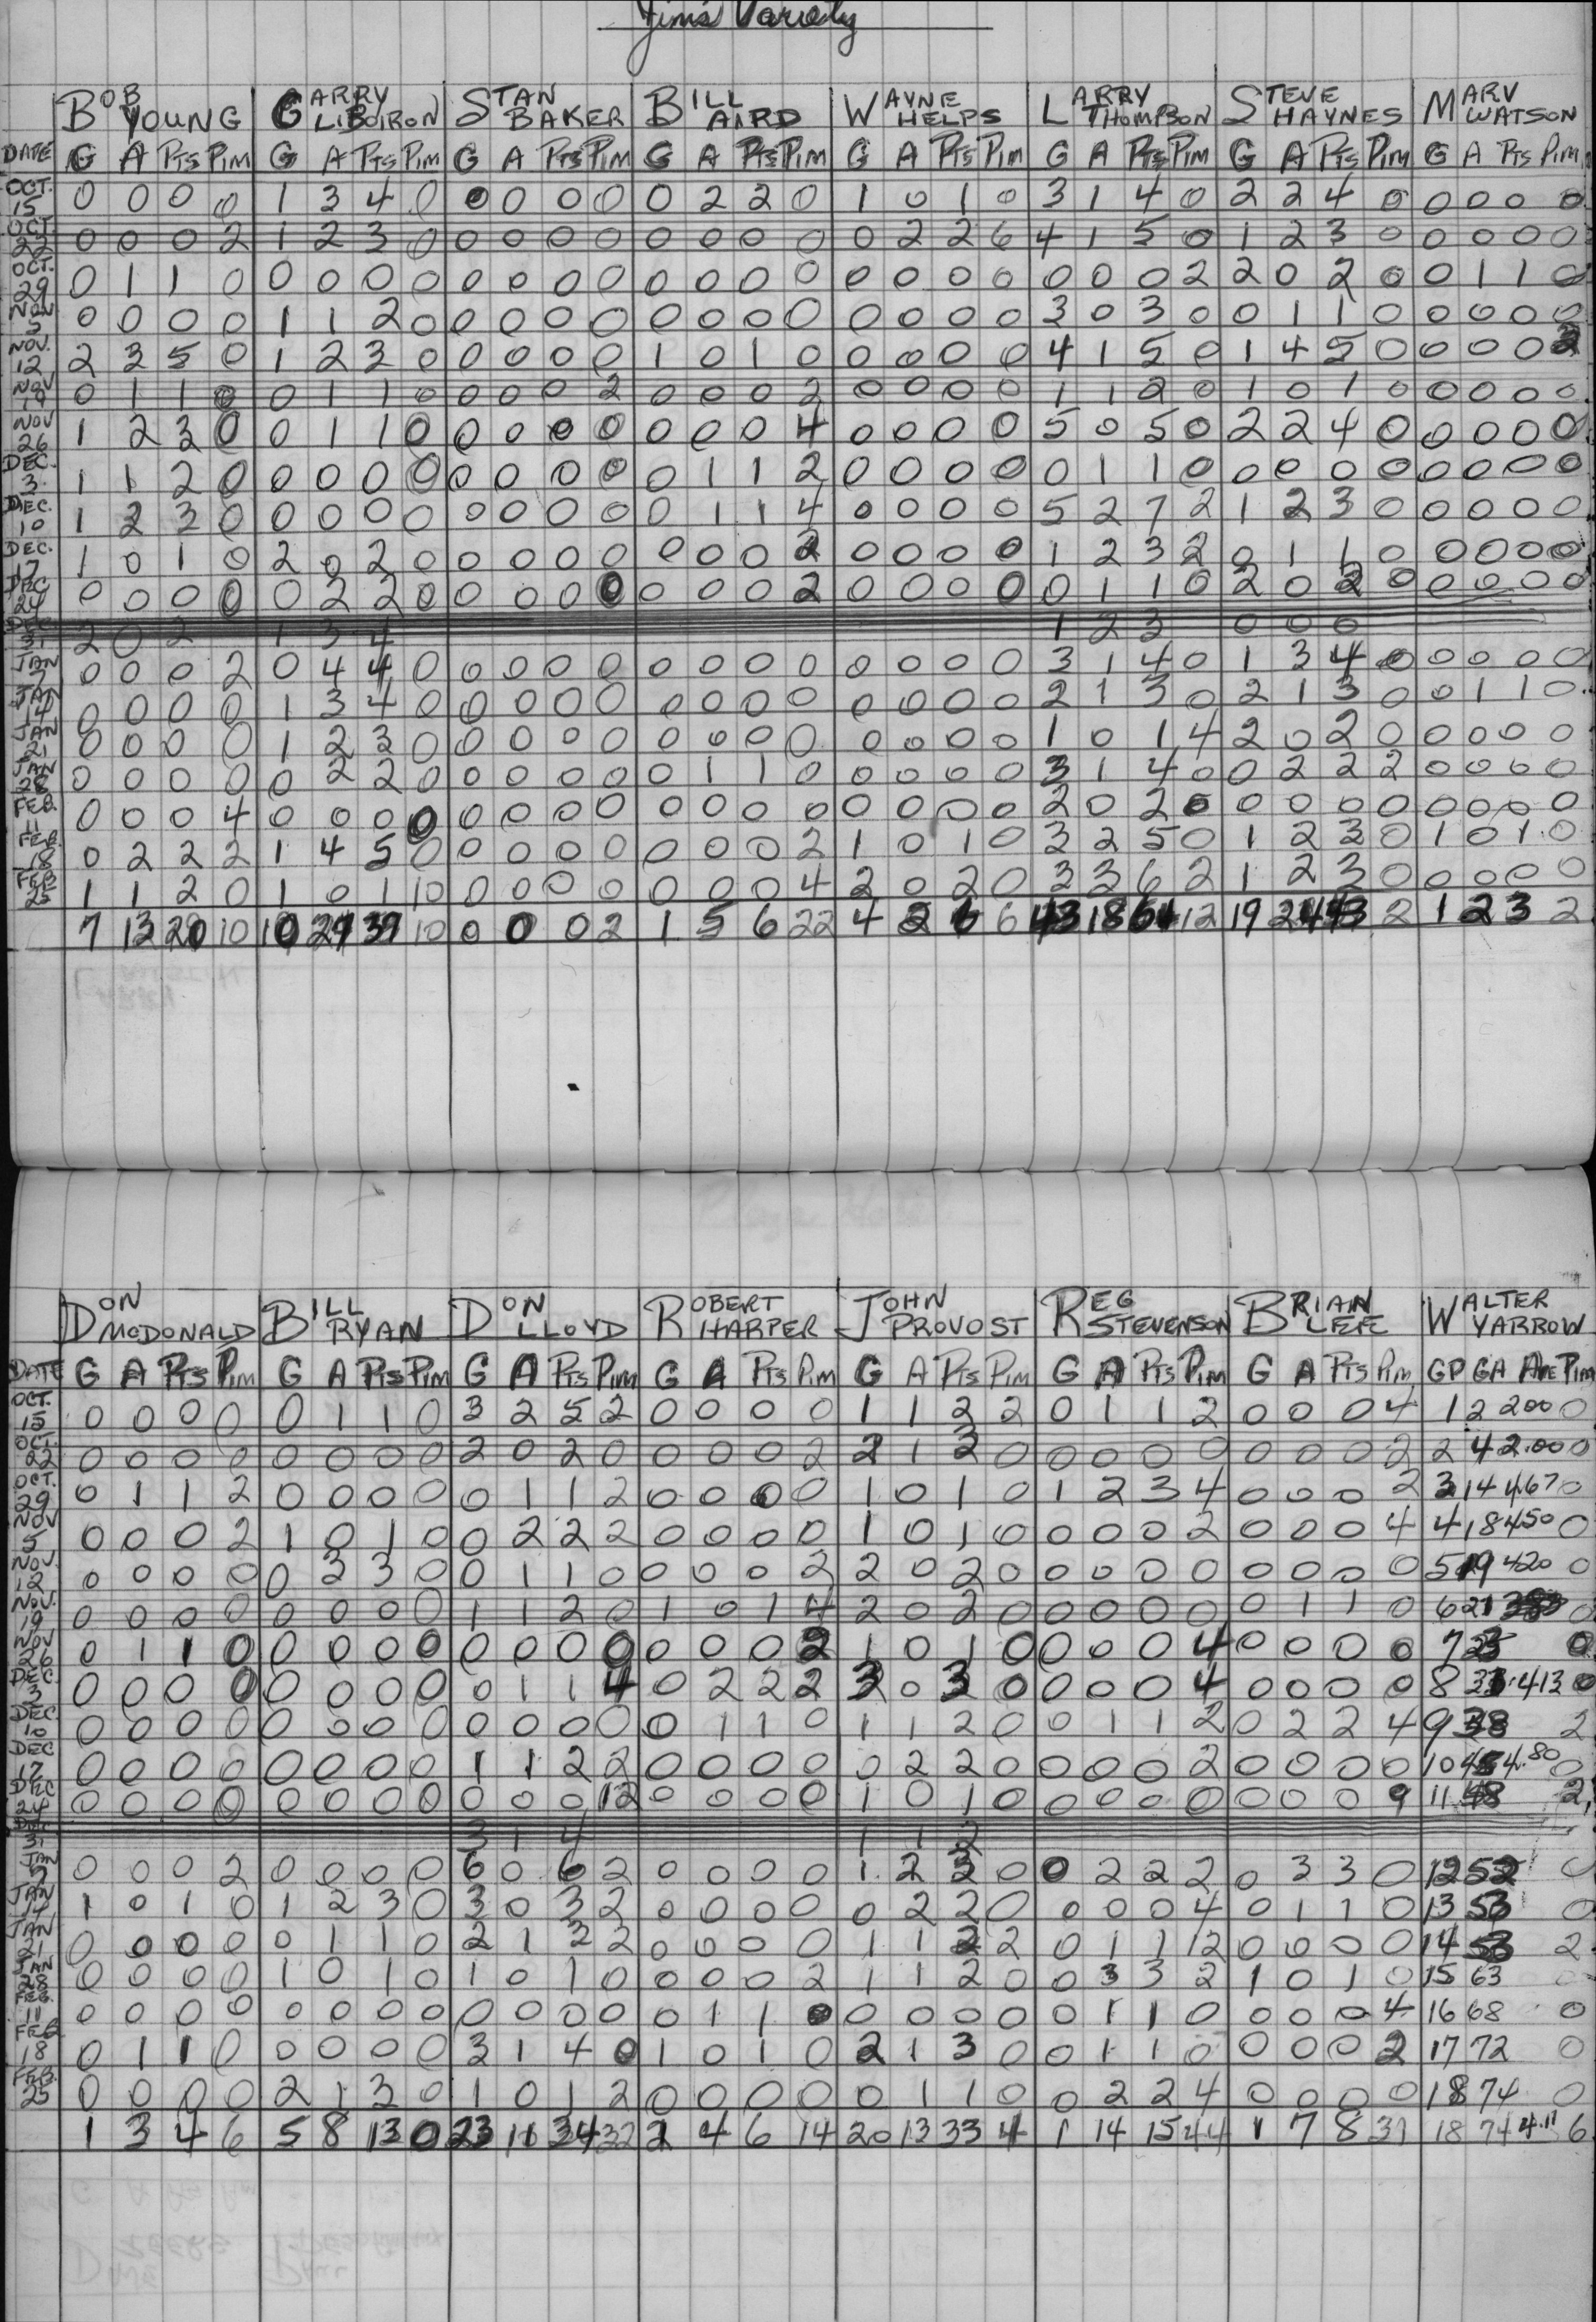 Jim's Variety
BOB YOUNG GARRY LIBOIRON STAN BAKER BILL AIRD WAYNE HELPS LARRY THOMPSON STEVE HAYNES MARV WATSON
DATE G A Pts Pim G A Pts Pim G A Pts Pim G A Pts Pim G A Pts Pim G A Pts Pim G A Pts Pim G A Pts Pim
OCT. 15 0 0 0 0 1 3 4 0 0 0 0 0 0 2 2 0 1 0 1 0 3 1 4 0 2 2 4 0 0 0 0 0
OCT. 22 0 0 0 2 1 2 3 0 0 0 0 0 0 0 0 0 0 2 2 6 4 1 5 0 1 2 3 0 0 0 0 0
OCT. 29 0 1 1 0 0 0 0 0 0 0 0 0 0 0 0 0 0 0 0 0 0 0 0 2 2 0 2 0 0 1 1 0
NOV 5 0 0 0 0 1 1 2 0 0 0 0 0 0 0 0 0 0 0 0 0 3 0 3 0 0 1 1 0 0 0 0 0
NOV. 12 2 3 5 0 1 2 3 0 0 0 0 0 1 0 1 0 0 0 0 0 4 1 5 0 1 4 5 0 0 0 0 2
NOV 19 0 1 1 0 0 1 1 0 0 0 0 2 0 0 0 2 0 0 0 0 1 1 2 0 1 0 1 0 0 0 0 0
NOV 26 1 2 3 0 0 1 1 0 0 0 0 0 0 0 0 4 0 0 0 0 5 0 5 0 2 2 4 0 0 0 0 0
DEC. 3 1 1 2 0 0 0 0 0 0 0 0 0 0 1 1 2 0 0 0 0 0 1 1 0 0 0 0 0 0 0 0 0
DEC. 10 1 2 3 0 0 0 0 0 0 0 0 0 0 1 1 4 0 0 0 0 5 2 7 2 1 2 3 0 0 0 0 0
DEC. 17 1 0 1 0 2 0 2 0 0 0 0 0 0 0 0 2 0 0 0 0 1 2 3 2 0 1 1 0 0 0 0 0
DEC 24 0 0 0 0 0 2 2 0 0 0 0 0 0 0 0 2 0 0 0 0 0 1 1 0 2 0 2 0 0 0 0 0
DEC. 31 2 0 2 1 3 4 1 2 3 0 0 0
JAN 7 0 0 0 2 0 4 4 0 0 0 0 0 0 0 0 0 0 0 0 0 3 1 4 0 1 3 4 0 0 0 0 0
JAN 14 0 0 0 0 1 3 4 0 0 0 0 0 0 0 0 0 0 0 0 0 2 1 3 0 2 1 3 0 0 1 1 0
JAN 21 0 0 0 0 1 2 3 0 0 0 0 0 0 0 0 0 0 0 0 0 1 0 1 4 2 0 2 0 0 0 0 0
JAN 28 0 0 0 0 0 2 2 0 0 0 0 0 0 1 1 0 0 0 0 0 3 1 4 0 0 2 2 2 0 0 0 0
FEB. 11 0 0 0 4 0 0 0 0 0 0 0 0 0 0 0 0 0 0 0 0 2 0 2 0 0 0 0 0 0 0 0 0
FEB. 18 0 2 2 2 1 4 5 0 0 0 0 0 0 0 0 2 1 0 1 0 3 2 5 0 1 2 3 0 1 0 1 0
FEB 25 1 1 2 0 1 0 1 10 0 0 0 0 0 0 0 4 2 0 2 0 3 3 6 2 1 2 3 0 0 0 0 0
7 13 20 10 10 29 39 10 0 0 0 2 1 5 6 22 4 2 6 6 43 18 61 12 19 24 43 2 1 2 3 2
DON MCDONALD BILL RYAN DON LLOYD ROBERT HARPER JOHN PROVOST REG STEVENSON BRIAN WALTER YARROW
DATE G A Pts Pim G A Pts Pim G A Pts Pim G A Pts Pim G A Pts Pim G A Pts Pim G A Pts Pim GP GA Ave Pim
OCT. 15 0 0 0 0 0 1 1 0 3 2 5 2 0 0 0 0 1 1 2 2 0 1 1 2 0 0 0 4 1 2 2.00 0
OCT. 22 0 0 0 0 0 0 0 0 2 0 2 0 0 0 0 2 2 1 3 0 0 0 0 0 0 0 0 2 2 4 2.00 0
OCT. 29 0 1 1 2 0 0 0 0 0 1 1 2 0 0 0 0 1 0 1 0 1 2 3 4 0 0 0 2 3 14 4.67 0
NOV 5 0 0 0 2 1 0 1 0 0 2 2 2 0 0 0 0 1 0 1 0 0 0 0 2 0 0 0 4 4 18 4.50 0
NOV. 12 0 0 0 0 0 3 3 0 0 1 1 0 0 0 0 2 2 0 2 0 0 0 0 0 0 0 0 0 5 19 4.20 0
NOV. 19 0 0 0 0 0 0 0 0 1 1 2 0 1 0 1 4 2 0 2 0 0 0 0 0 0 1 1 0 6 21 0
NOV 26 0 1 1 0 0 0 0 0 0 0 0 0 0 0 0 2 1 0 1 0 0 0 0 4 0 0 0 0 7 25 0
DEC 3 0 0 0 0 0 0 0 0 0 1 1 4 0 2 2 2 3 0 3 0 0 0 0 4 0 0 0 0 8 33 4.13 0
DEC. 10 0 0 0 0 0 0 0 0 0 0 0 0 0 1 1 0 1 1 2 0 0 1 1 2 0 2 2 4 9 38 2
DEC 17 0 0 0 0 0 0 0 0 1 1 2 2 0 0 0 0 0 2 2 0 0 0 0 2 0 0 0 0 10 4.80 0
DEC 24 0 0 0 0 0 0 0 0 0 0 0 12 0 0 0 0 1 0 1 0 0 0 0 0 0 0 0 9 11 48 2
DEC 31 3 1 4 1 1 2
JAN 7 0 0 0 2 0 0 0 0 6 0 6 2 0 0 0 0 1 2 3 0 0 2 2 2 0 3 3 0 12 52 0
JAN 14 1 0 1 0 1 2 3 0 3 0 3 2 0 0 0 0 0 2 2 0 0 0 0 4 0 1 1 0 13 53 0
JAN 21 0 0 0 0 0 1 1 0 2 1 3 2 0 0 0 0 1 1 2 2 0 1 1 12 0 0 0 0 14 58 2
JAN 28 0 0 0 0 1 0 1 0 1 0 1 0 0 0 0 2 1 1 2 0 0 3 3 2 1 0 1 0 15 63 0
FEB. 11 0 0 0 0 0 0 0 0 0 0 0 0 0 1 1 0 0 0 0 0 0 1 1 0 0 0 0 4 16 68 0
FEB 18 0 1 1 0 0 0 0 0 3 1 4 0 1 0 1 0 2 1 3 0 0 1 1 0 0 0 0 2 17 72 0
FEB. 25 0 0 0 0 2 1 3 0 1 0 1 2 0 0 0 0 0 1 1 0 0 2 2 4 0 0 0 0 18 74 0
1 3 4 6 5 8 13 0 23 11 34 32 2 4 6 14 20 13 33 4 1 14 15 44 1 7 8 31 18 74 4.11 6